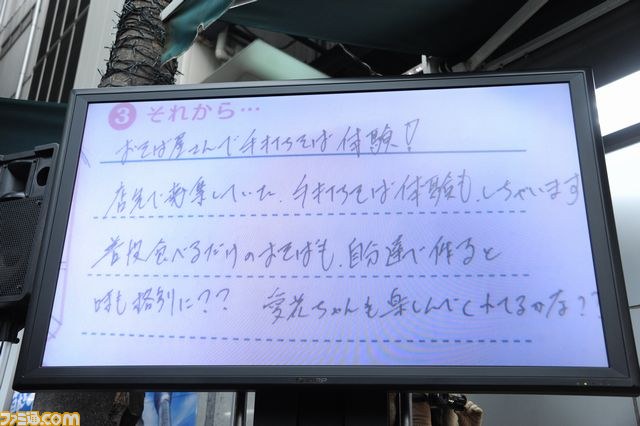 3 それから…
おそば屋さんで手打ちそば体験!
店先で募集していた、手打ちそば体験もしちゃいます
普段食べるだけのおそばも、自分達で作ると
味も格別に?? 愛花ちゃんも楽しんでくれてるかな??
ファミ通.com